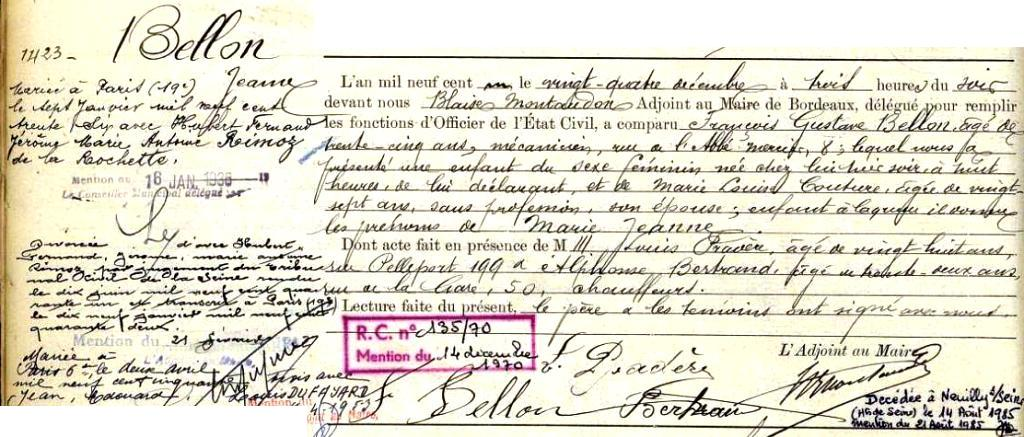 1423 - Bellon
Jeanne
Mariée à Paris (19e)
le sept Janvier mil neuf cent
trente six avec Hubert Fernand
Jérôme Marie Antoine Rimoz
de la Rochette.
Mention du 16 JAN. 1936
Le Conseiller Municipal délégué
Divorcée d'avec Hubert,
Fernand, Jérôme, Marie Antoine
Rimoz jugement du Tribunal
Civil de la Seine
le dix juin mil neuf cent quarante
un transcrit à Paris (19e)
le dix neuf janvier mil neuf cent
quarante deux.
Mention du 21
Mariée à
Paris 6e, le deux avril
mil neuf cent cinquante trois avec
Jean, Edouard, Louis DUFAYARD
Mention du
L'an mil neuf cent un le vingt-quatre décembre à trois heures du soir
devant nous Blaise Montaudon Adjoint au Maire de Bordeaux, délégué pour remplir
les fonctions d'Officier de l'État Civil, a comparu François Gustave Bellon, âgé de
trente-cinq ans, mécanicien, rue de l'Abbé 8; lequel nous a
présenté une enfant du sexe féminin née chez lui hier soir, à huit
heures, de lui déclarant, et de Marie Louise Couture, âgée de vingt-
sept ans, sans profession, son épouse; enfant à laquelle il donne
les prénoms de Marie Jeanne
Dont acte fait en présence de M M. Louis Pradère, âgé de vingt huit ans,
rue Pelleport 199 & Alphonse Bertrand, âgé de trente-deux ans
rue de la Gare, 50, chauffeurs.
Lecture faite du présent, le père & les témoins ont signé avec nous
R.C. n° 135/70
Mention du 14 décembre
1970
L. Pradère
L'Adjoint au Maire
Bellon Bertrand
Décédée à Neuilly s/Seine
(Hts de Seine) le 14 Août 1985
mention du 21 Août 1985